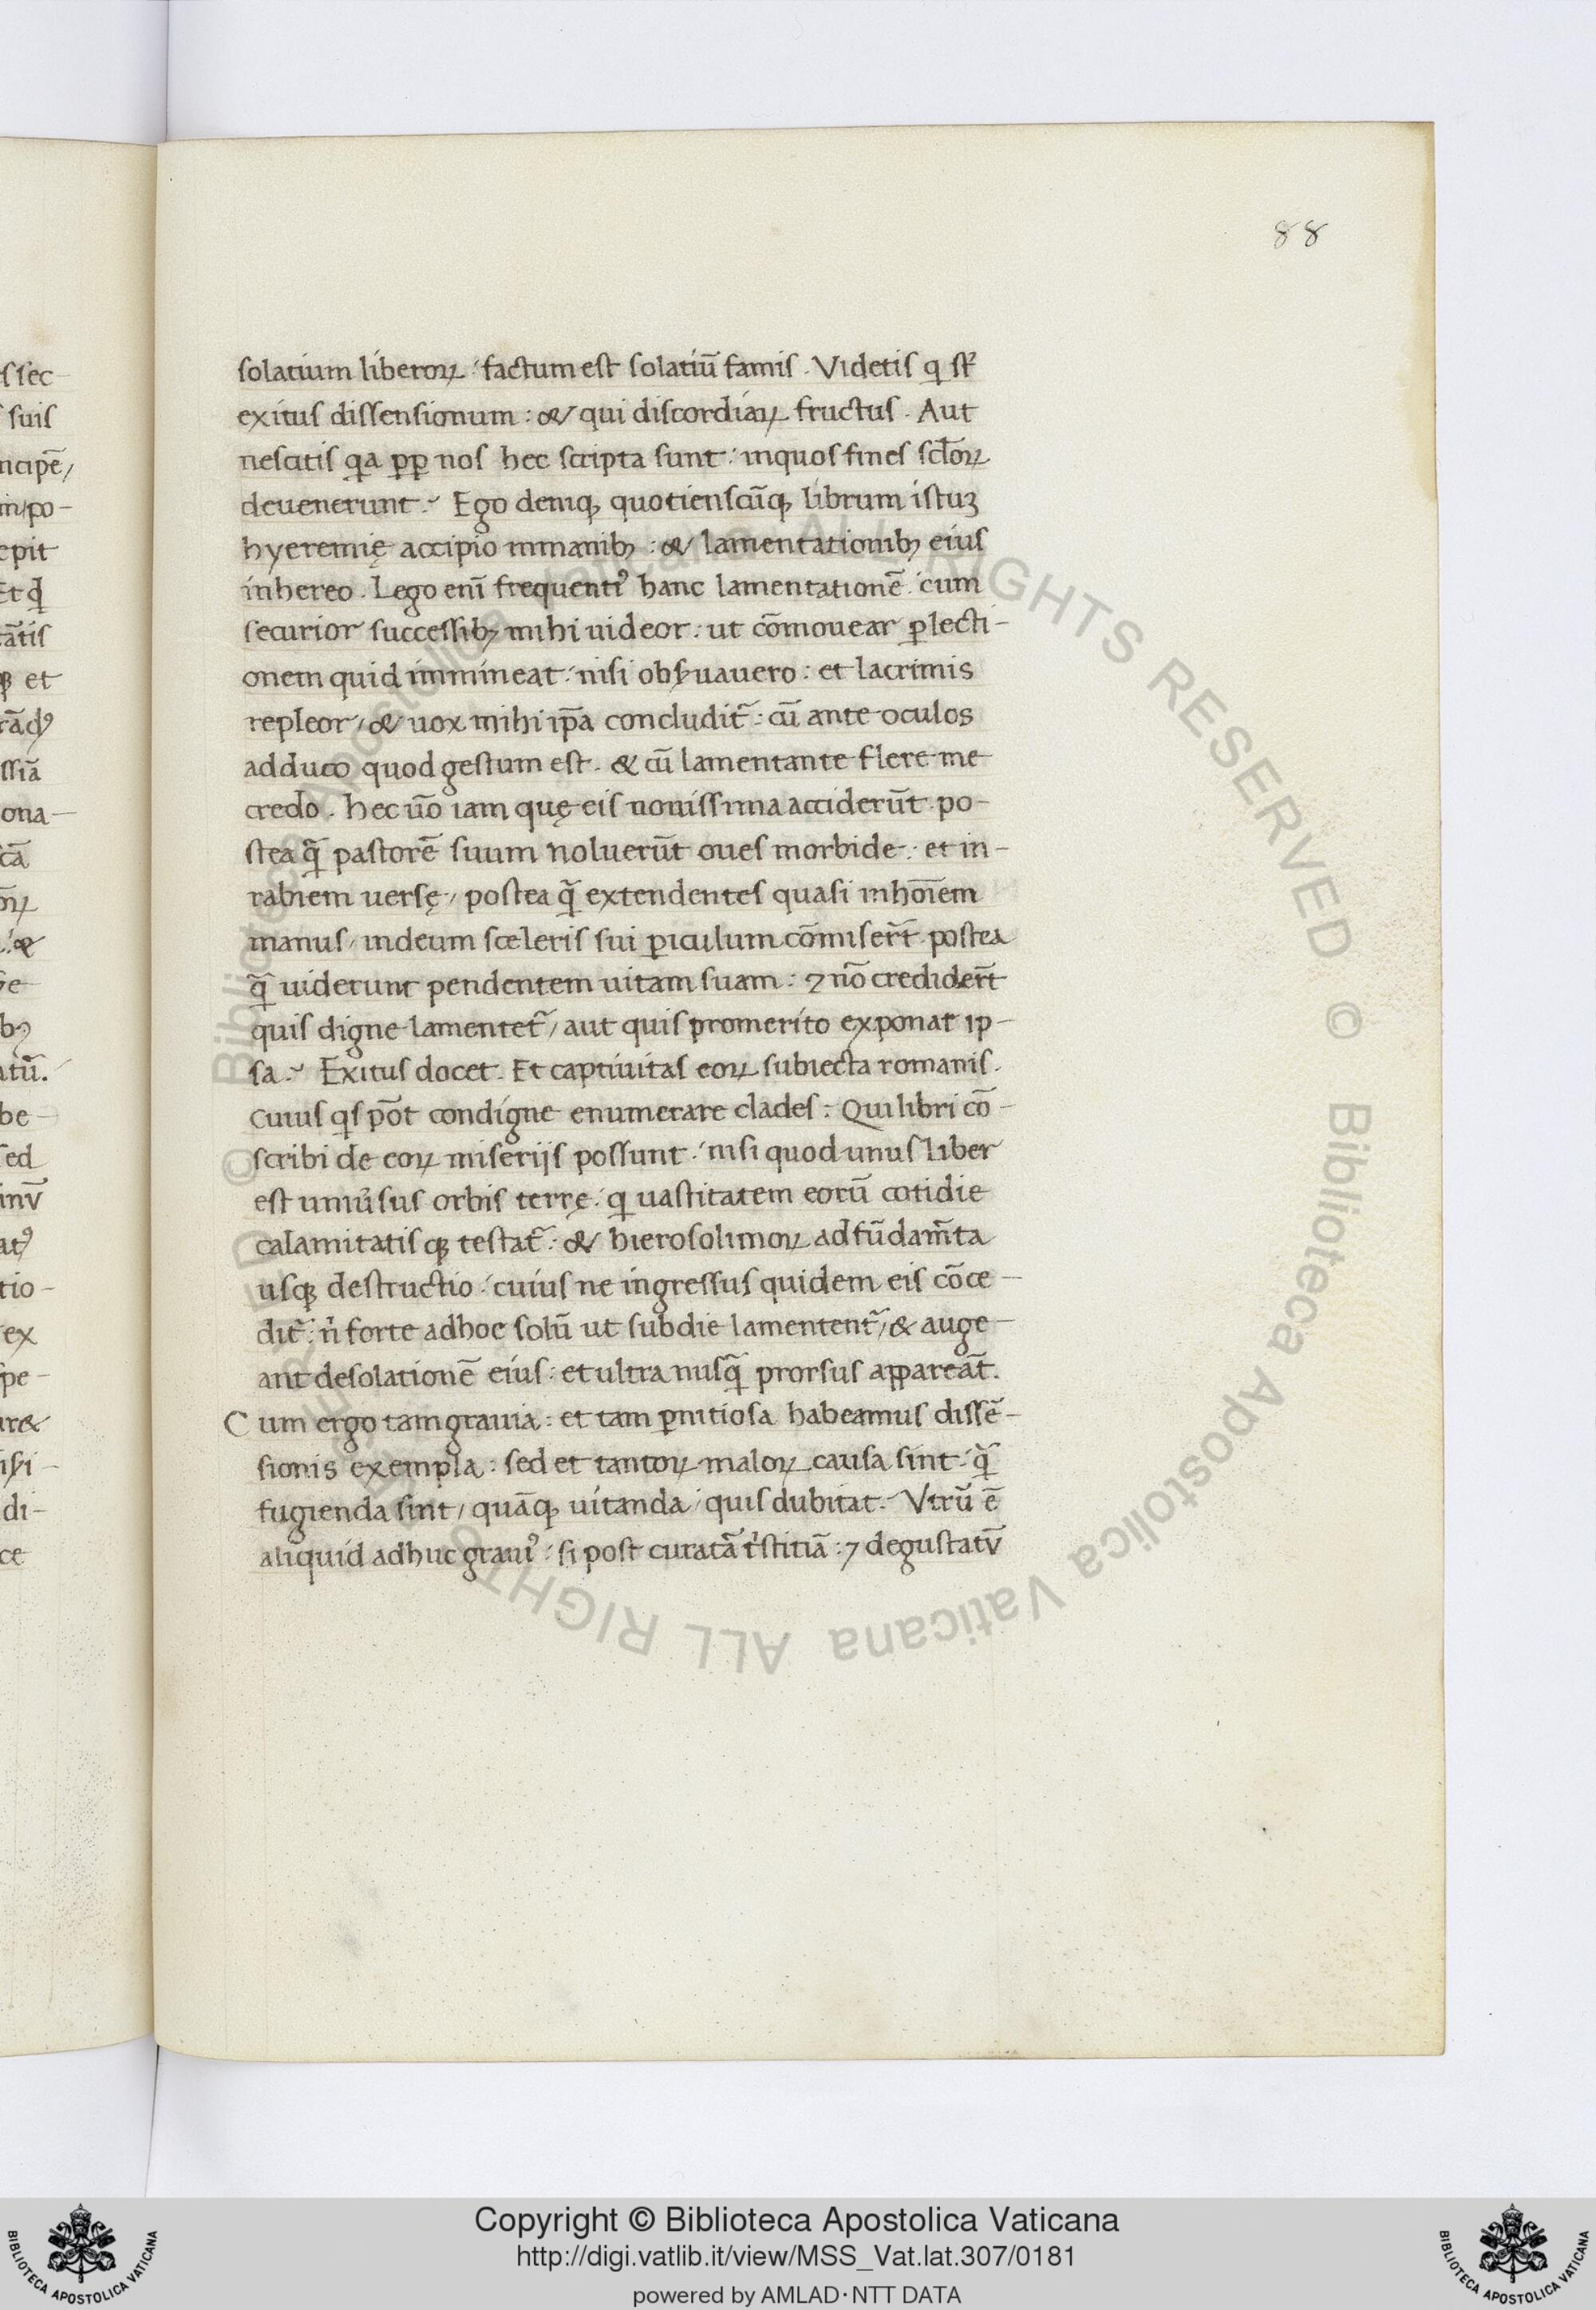 88
solatium liberoꝝ: factum est solatiū famis. Videtis q st̄
exitus dissensionum: & qui discordiaꝝ fructus. Aut
nescitis qͥa ꝓꝑ nos hec scripta sunt: inquos fines sclōꝝ
devenerunt? Ego deniqꝫ quotienscūqꝫ librum istuꝫ
hyeremię accipio inmanibꝫ: & lamentationibꝫ eius
inhereo. Lego enī frequentiꝰ hanc lamentationē: cum
securior successibꝫ mihi uideor: ut cōmouear ꝑ lecti-
onem quid immineat: nisi obẜuauero: et lacrimis
repleor / & uox mihi ip̄a concludit᷑: cū ante oculos
adduco quod gestum est. & cū lamentante flere me
credo. hec u̅o iam quę eis nouissima acciderūt po-
stea q̄ᷓ pastorē suum noluerūt oues morbide: et in-
rabiem uersę / postea q̄ᷓ extendentes quasi inhoīem
manus / indeum sceleris sui ꝑiculum cōmiser̄t postea
q̄ᷓ uiderunt pendentem uitam suam: ⁊ nō credider̄t
quis digne lamentet᷑ / aut quis promerito exponat ip-
sa? Exitus docet. Et captiuitas eoꝝ subiecta romanis.
cuius qͥs pōt condigne enumerare clades: Qui libri cō-
scribi de eoꝝ miserijs possunt: nisi quod unus liber
est uniūsus orbis terrę: q uastitatem eorū cotidie
calamitatis qꝫ testat᷑: & hierosolimoꝝ ad fūdam̄ta
usqꝫ destructio: cuius ne ingressus quidem eis cōce-
dit᷑: nͥ forte adhoc solū ut subdie lamentent᷑ / & auge-
ant desolationē eius: et ultra nusq̄ᷓ prorsus appareāt.
Cum ergo tam grauia: et tam ꝑnitiosa habeamus dissē-
sionis exempla: sed et tantoꝝ maloꝝ causa sint: q̄ᷓ
fugienda sint / quāqꝫ uitanda / quis dubitat? Vtrū ē
aliquid adhuc grauiꝰ: si post curatā tͥstitiā: ⁊ degustatū
Copyright © Biblioteca Apostolica Vaticana
http://digi.vatlib.it/view/MSS_Vat.lat.307/0181
powered by AMLAD·NTT DATA